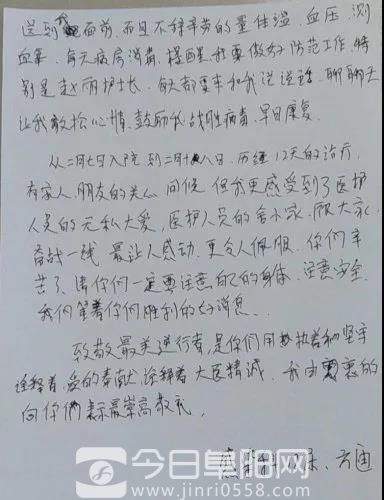 送到我面前，而且不辞辛劳的量体温、血压、测
血氧，每天病房消毒，提醒我要做好防范工作，特
别是赵丽护士长，每天都要来和我说说话、聊聊天
让我放松心情、鼓励我战胜病毒，早日康复。
从二月七日入院到二月十八日，历经12天的治疗，
有家人、朋友的关心、问候，但我更感受到了医护
人员的无私大爱，医护人员的舍小家、顾大家，
奋战一线，最让人感动，更令人佩服，你们辛
苦了，请你们一定要注意自己的身体，注意安全，
我们等着你们胜利的好消息。
致敬最美逆行者，是你们用执着和坚守
诠释着爱的奉献，诠释着大医精诚。我由衷的
向你们表示最崇高敬礼。
感染科 方迪
今日阜阳网
www.jinri0558.com